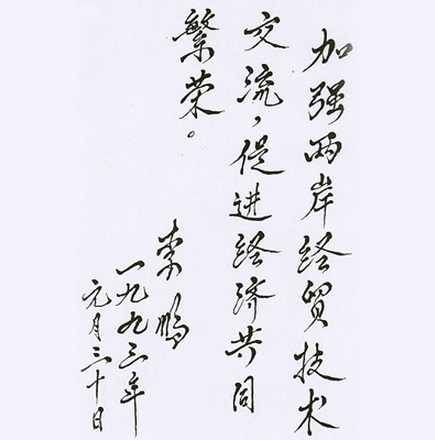 加强两岸经贸技术
交流，促进经济共同
繁荣。
李鹏
一九九三年
元月三十日